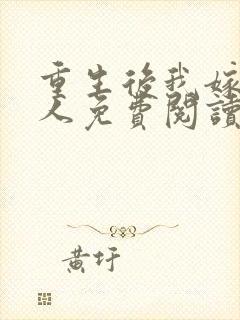 重生後我嫁
人免費閱讀
黃圩